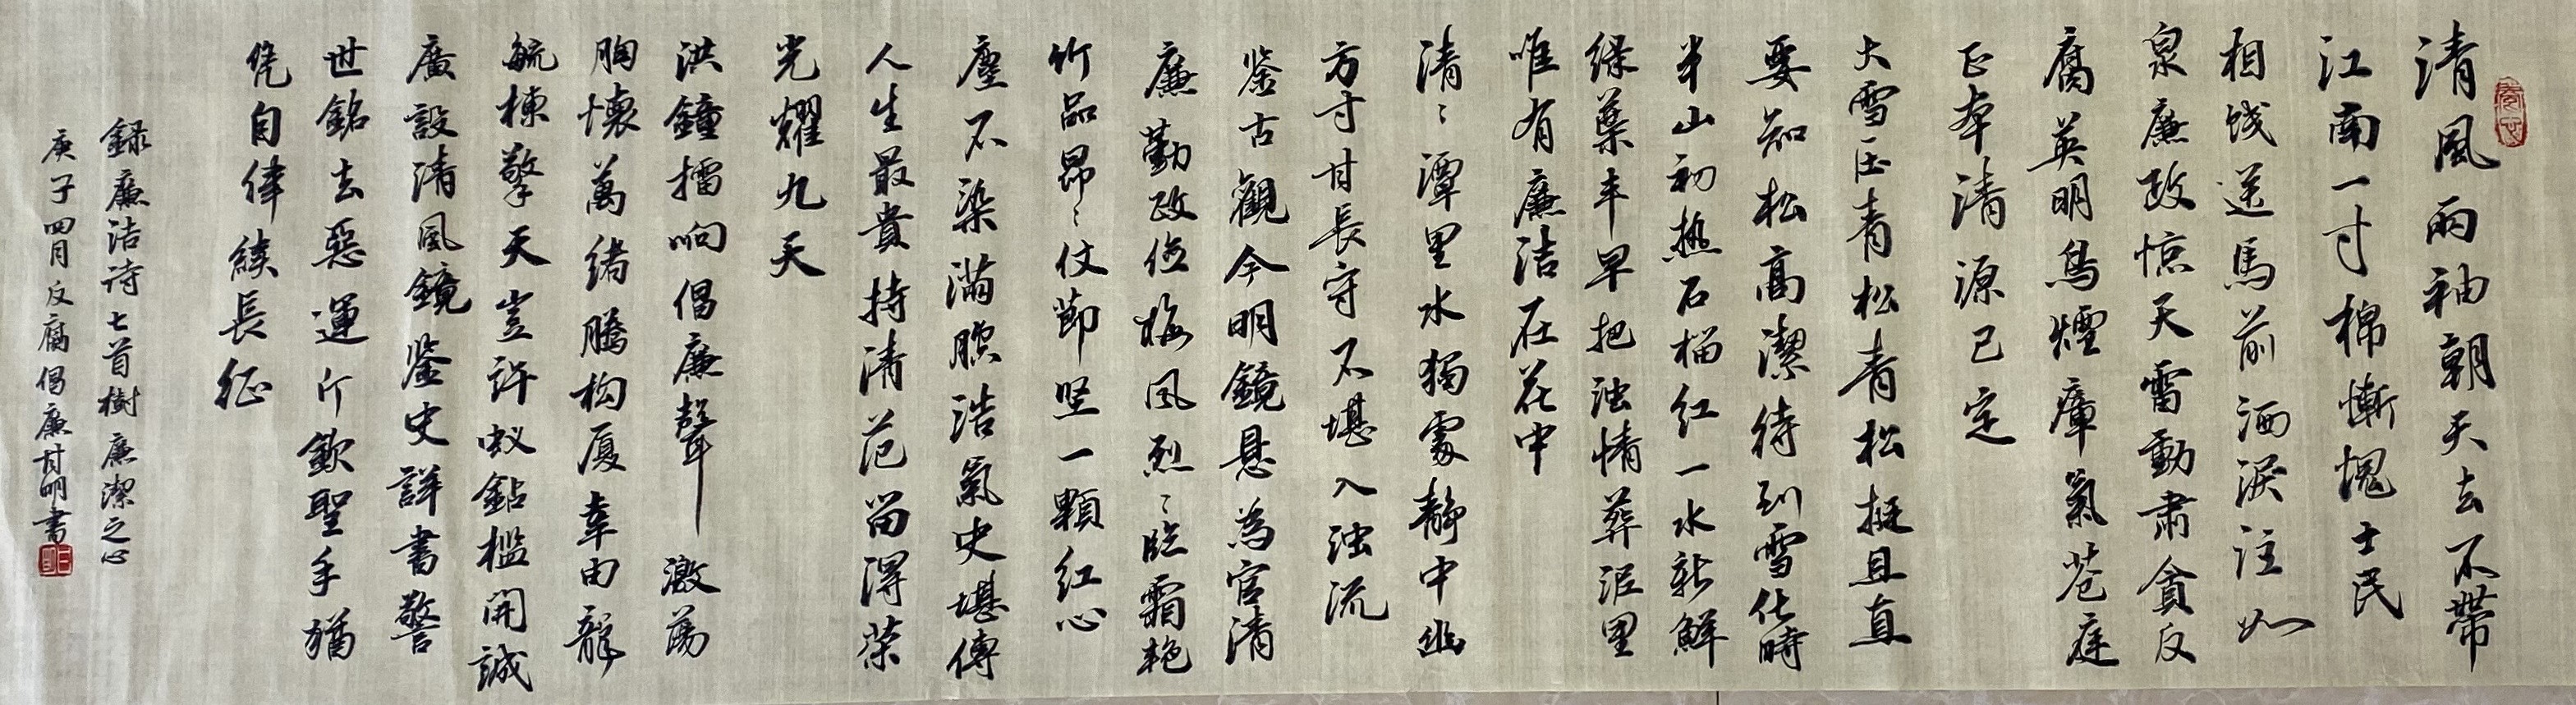 清風两袖朝天去不帶
江南一寸棉慚愧士民
相餞送馬前洒淚注如
泉廉政惊天雷動肃貪反
腐英明鳥煙瘴氣蒼庭
正本清源已定
大雪压青松青松挺且直
要知松高潔待到雪化時
半山初热石榴红一水新鮮
绿葉丰早把浊情葬泥里
唯有廉洁在花中
清〻潭里水獨處静中幽
方寸甘長守不堪入浊流
鉴古觀今明鏡悬為官清
廉勤政俭梅风烈〻临霜艳
竹品昂〻仗節坚一顆红心
塵不染滿腔浩氣史堪傳
人生最貴持清范留得荣
光耀九天
洪鐘擂响倡廉聲激荡
胸懷萬绪腾构厦幸由龍
毓棟擎天豈許蚁鉆檻開誠
廣設清風鏡鉴史詳書警
世銘去惡運斤欽聖手猶
凭自律续長征
録廉洁诗七首樹廉潔之心
庚子四月反腐倡廉甘明書